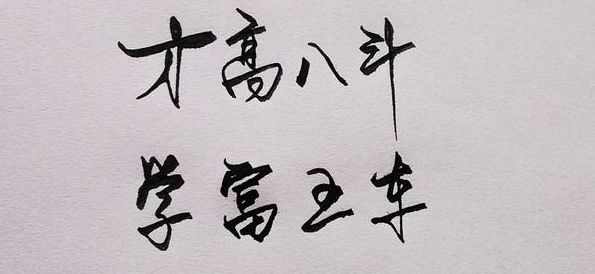 才高八斗
学富五车